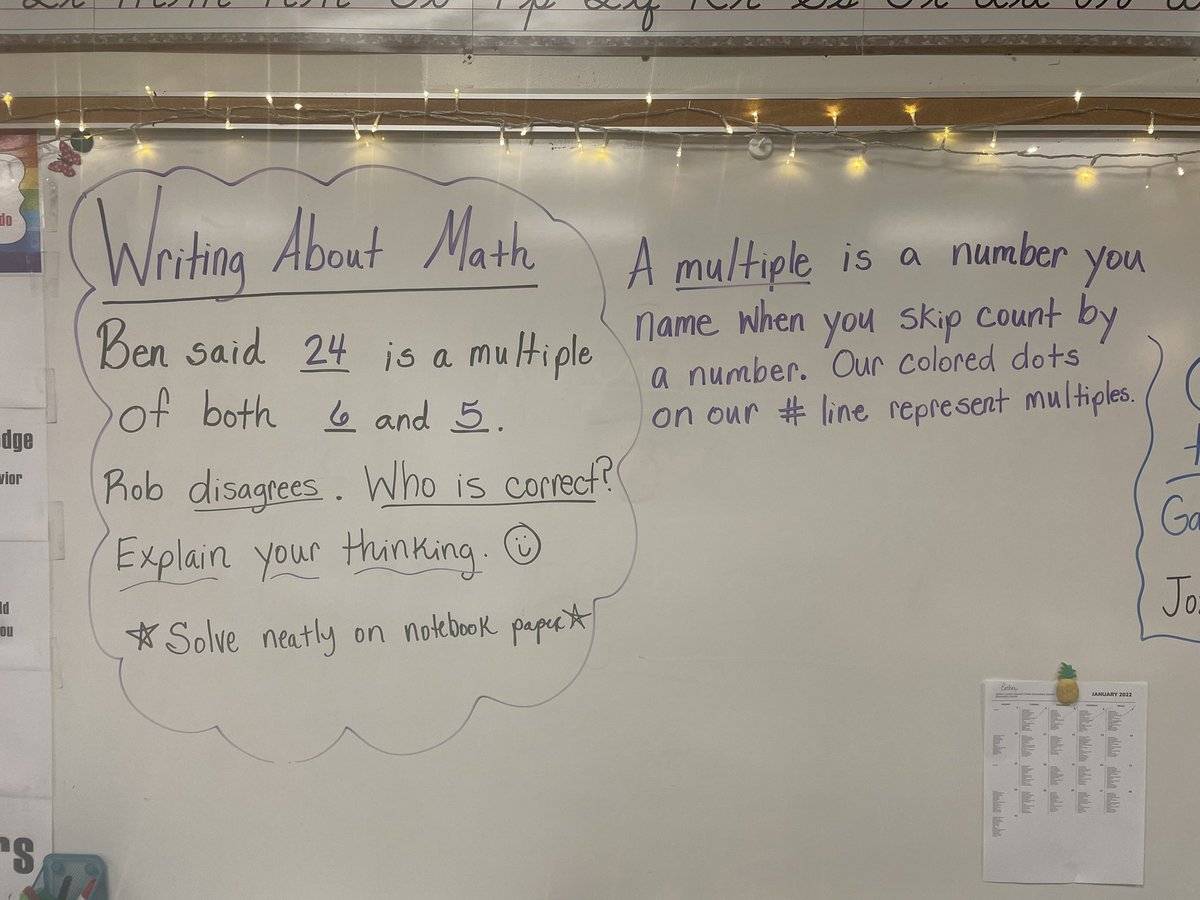 do
dge
vior
ld
ou
rs
Writing About Math
Ben said 24 is a multiple
of both 6 and 5.
Rob disagrees. Who is correct?
Explain your thinking.
☆ Solve neatly on notebook paper ☆
A multiple is a number you
name when you skip count by
a number. Our colored dots
on our # line represent multiples.
Ga
Jo
JANUARY 2022